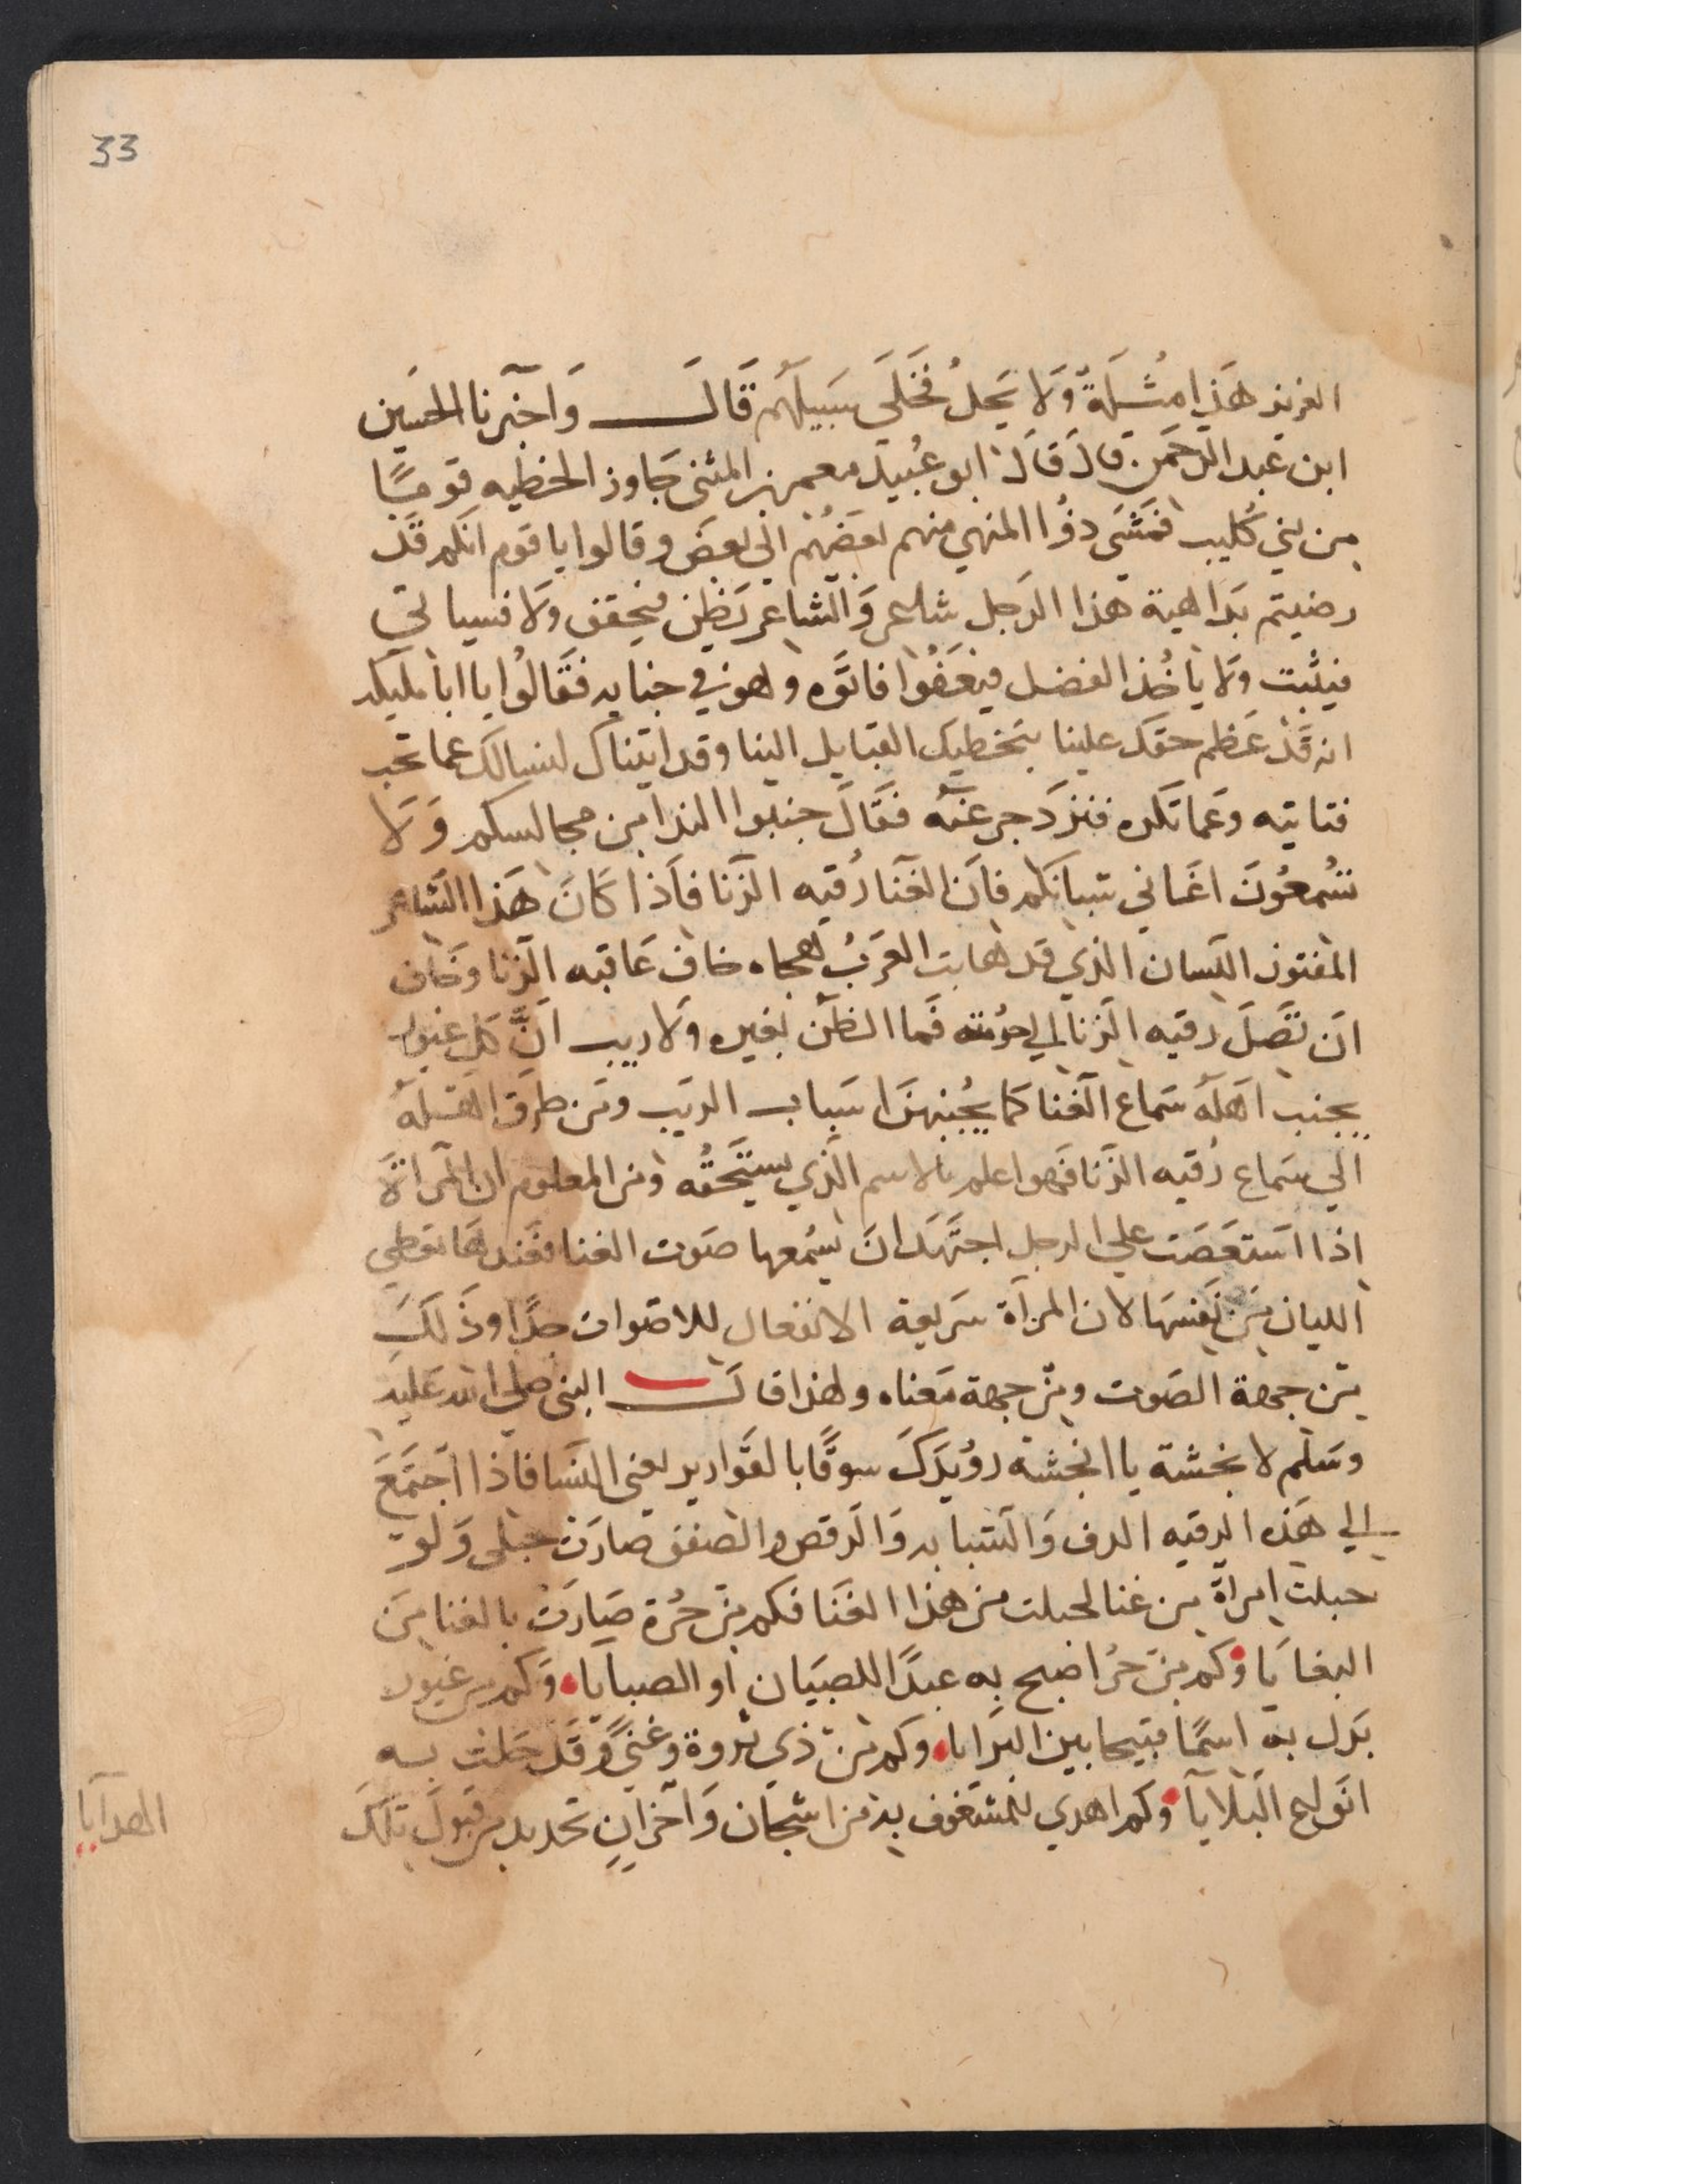 33
العزيز هَذِا مُثلَةٌ وَلا يَحِلُ فَخَلَى سَبِيلَهُم قَالَ وَاخبَرنا الحسَين
ابن عَبد الرحمَن قَالَ قَالَ ابو عُبيدَ معمر بن المثنى جَاوز الحطيه قومًا
من بني كُليب فمَشَى ذوُا النهي منهم بَعضُهم الى بَعض وقالوا يا قوم انكم قَد
رضيتم بدَاهية هذا الرَجل شاعر وَالشاعر يَظن فيحقق وَلا فسياتي
فيثبت وَلا يَاخُذ الفضل فيعَفُوا فاتَوَه وهوَ في خبايه فقَالوُا يا ابا مليكه
انه قَد عَظم حقك علينا بتخطيك القبايل الينا وقد اتيناك لنسالك عما تحب
فتاتيه وَعَما تكره فنزدَجر عَنه فقَالَ جنبوا الندا من مجالسكم وَلا
تسُمعُونَ اغَاني شبانكم فان الغنا رُقيه الزنا فاَذا كَانَ هَذا الشاعر
المفتون اللسان الذي قد هابت العَرَبُ هجاه خاف عَاقبه الزنا وخَاف
ان تصَلَ رقيه الزنا الى حرُمته فَما الظن بغيره وَلا ريب انَّ كل غيور
يجنب اهَلَهُ سَماع الغنا كمَا يجُنبهنَ اسَباب الريب ومَن طرق اهَلهُ
الى سَماع رُقيه الزنا فهَوا علم بالاسم الذي يستَحقُه ومن المعلوم ان المَراةَ
اذا استعصَت على الرجل اجتهَد ان يسُمعها صَوت الغنا فعَندهَا تعطي
الليان من نَفسهَا لان المرآة سَريعة الانفعال للاصوات جدًا وَذَلَكَ
من جهة الصَوت ومن جهة مَعناه ولهذا قالَ النبي صلى الله عَليه
وسَلم لانجشة يا انجشة روُيدَكَ سوقًا بالقَوارير يعني النسَا فاَذا اجتَمَعَ
الي هَذه الرقيه الدف وَالشبابه وَالرَقص والصفق صارَت حبلى وَلو
حبلت امرَاة من غنا لحبلت من هذا الغنَا فكم من حُرة صَارَت بالغنا مِنَ
البغايَا وَكم من حُرا ضبح به عبدًا للصبيَان او الصبايَا وَكم من غيور
بَدل به اسمًا قبيحا بين البرَايا وكم من ذي ثروة وغنىً وَقَد حَلت به
انَواع البَلايَا وَكم اهدي للمشغوف به من اشجان وَاحزانٍ تحديد من قبول تلكَ
الهدايا